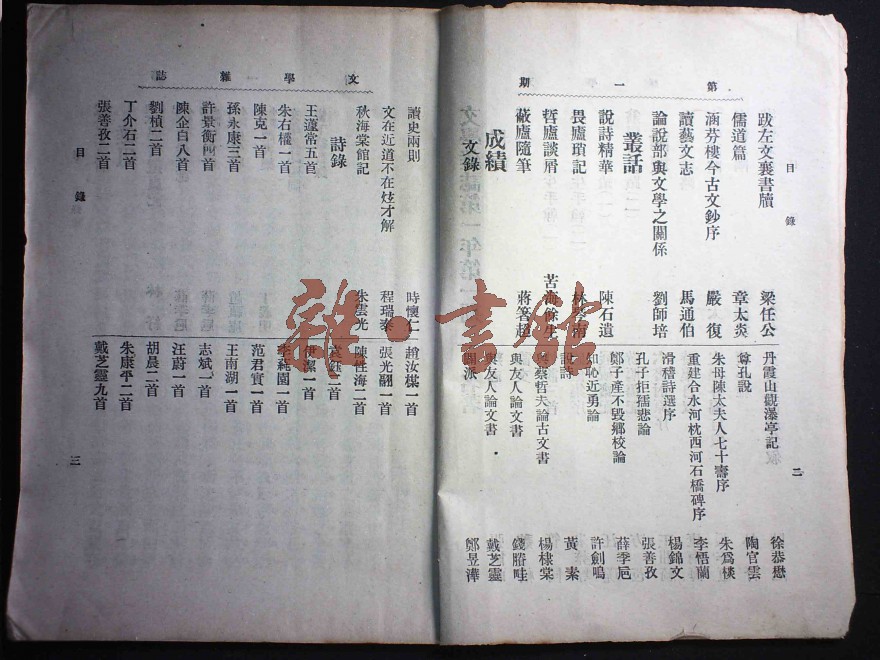 第一期
目錄
二
跋左文襄書牘 梁任公
儒道篇 章太炎
涵芬樓今古文鈔序 嚴復
讀藝文志 馬通伯
論說部與文學之關係 劉師培
叢話
說詩精華 陳石遺
畏廬瑣記 林琴南
哲廬談屑 苦海餘生
蔽廬隨筆 蔣箸超
成績
文錄
丹霞山觀瀑亭記 徐恭懋
尊孔說 陶官雲
朱母陳太夫人七十壽序 朱爲棪
重建合水河枕西河石橋碑序 李悟蘭
滑稽詩選序 楊錦文
孔子拒孺悲論 張善孜
鄭子產不毀鄉校論 薛季卮
知恥近勇論 許劍鳴
說詩 黃素
與蔡哲夫論古文書 楊棣棠
與友人論文書 錢
與友人論文書 戴芝靈
派 鄭昱
文學雜誌
讀史兩則 時懷仁
文在近道不在炫才解 程瑞
秋海棠館記 朱雲光
詩錄
王蘧常五首
朱右權一首
陳克一首
孫永康三首
許景衡四首
陳企白八首
劉楨二首
丁介石二首
張善孜二首
趙汝棪一首
張光翮一首
陳性海二首
袁鈺二首
伊潔一首
李蒓園一首
范君實一首
王南湖一首
志斌一首
汪蔚一首
胡晨二首
朱康平二首
戴芝靈九首
目錄
三
雜·書館